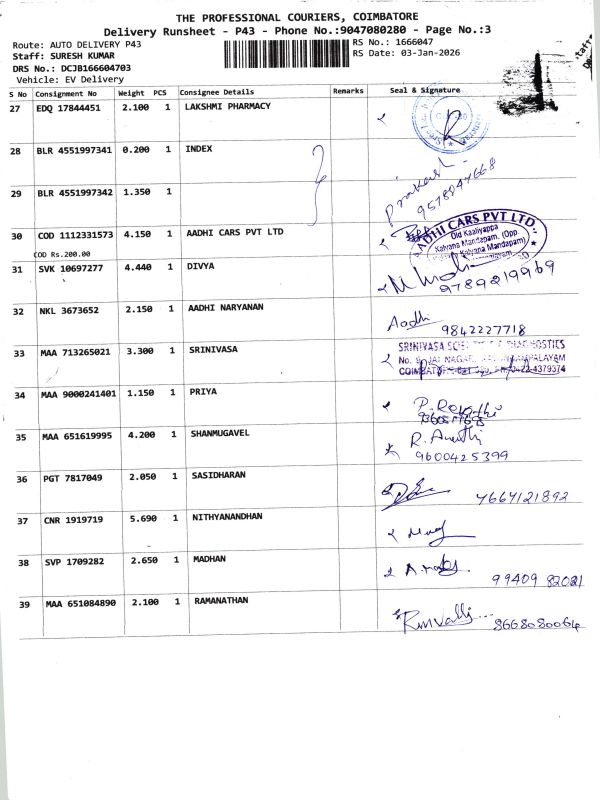 THE PROFESSIONAL COURIERS, COIMBATORE
Delivery Runsheet - P43 - Phone No.:9047080280 - Page No.:3
Route: AUTO DELIVERY P43
RS No.: 1666047
Staff: SURESH KUMAR
RS Date: 03-Jan-2026
DRS No.: DCJB166604703
Vehicle: EV Delivery
S No Consignment No Weight PCS Consignee Details Remarks Seal & Signature
27 EDQ 17844451 2.100 1 LAKSHMI PHARMACY
28 BLR 4551997341 0.200 1 INDEX
Prakash
29 BLR 4551997342 1.350 1
9578047668
30 COD 1112331573 4.150 1 AADHI CARS PVT LTD
AADHI CARS PVT LTD.
Old Kaaliyappa
Kalyana Mandapam, (Opp.
Kalyana Mandapam)
COD Rs.200.00
31 SVK 10697277 4.440 1 DIVYA
9789219969
32 NKL 3673652 2.150 1 AADHI NARYANAN
Aadhi 9842227718
33 MAA 713265021 3.300 1 SRINIVASA
SRINIVASA DIAGNOSTICS
34 MAA 9000241401 1.150 1 PRIYA
P. Revathi
35 MAA 651619995 4.200 1 SHANMUGAVEL
9600425399
36 PGT 7817049 2.050 1 SASIDHARAN
7667121892
37 CNR 1919719 5.690 1 NITHYANANDHAN
38 SVP 1709282 2.650 1 MADHAN
99409 82021
39 MAA 651084890 2.100 1 RAMANATHAN
8668080064